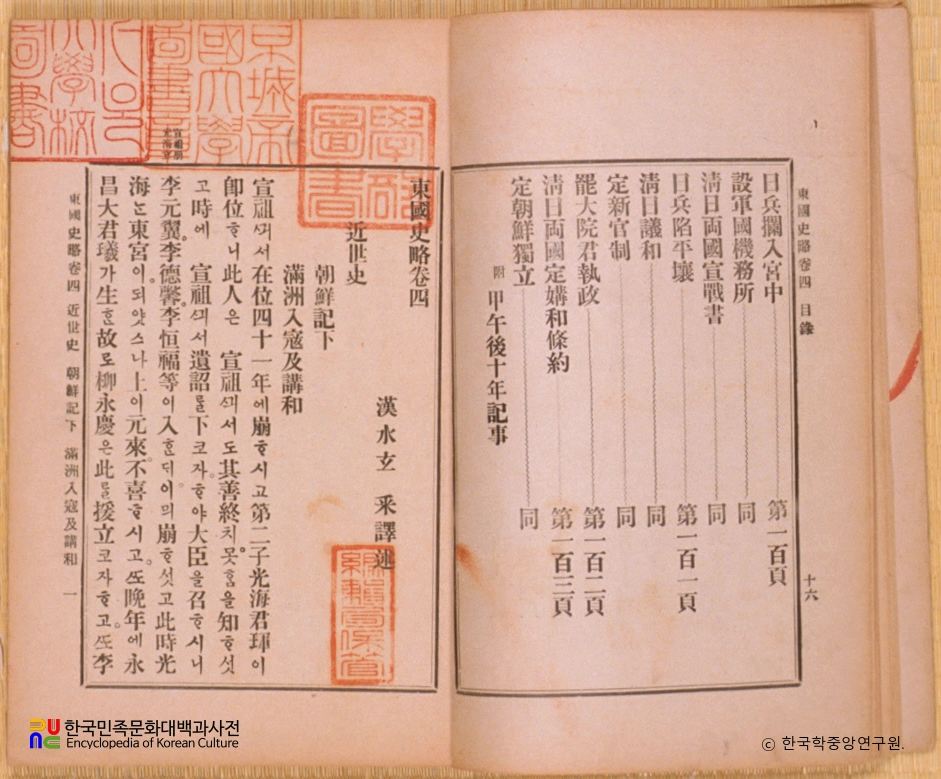 東國史略卷四 目錄
十六
日兵攔入宮中 第一百頁
設軍國機務所 同
淸日両國宣戰書 同
日兵陷平壤 第一百一頁
淸日議和 同
定新官制 同
罷大院君執政 第一百二頁
淸日両國定媾和條約 第一百三頁
定朝鮮獨立 同
附 甲午後十年記事
東國史略卷四
漢水玄 采譯述
近世史
朝鮮記下
滿洲入寇及講和
宣祖ᄭᅴ셔 在位四十一年에 崩ᄒᆞ시고 第二子光海君琿이
卽位ᄒᆞ니 此人은 宣祖ᄭᅴ셔도 其善終치못ᄒᆞᆷ을 知ᄒᆞ섯
고 時에 宣祖ᄭᅴ셔 遺詔를 下코자ᄒᆞ야 大臣을 召ᄒᆞ시니
李元翼、李德馨、李恒福等이 入ᄒᆞᆫ디 이의 崩ᄒᆞ섯고 此時光
海ᄂᆞᆫ 東宮이 되얏스나 上이 元來不喜ᄒᆞ시고、ᄯᅩ 晩年에 永
昌大君㼁가 生ᄒᆞᆫ故로 柳永慶은 此를 援立코자ᄒᆞ고、ᄯᅩ 李
東國史略卷四 近世史 朝鮮記下 滿洲入寇及講和 一
宣祖崩
光海立
京城帝
國大學
圖書章
學部
圖書
編輯局保管
한국민족문화대백과사전
Encyclopedia of Korean Culture
ⓒ 한국학중앙연구원.